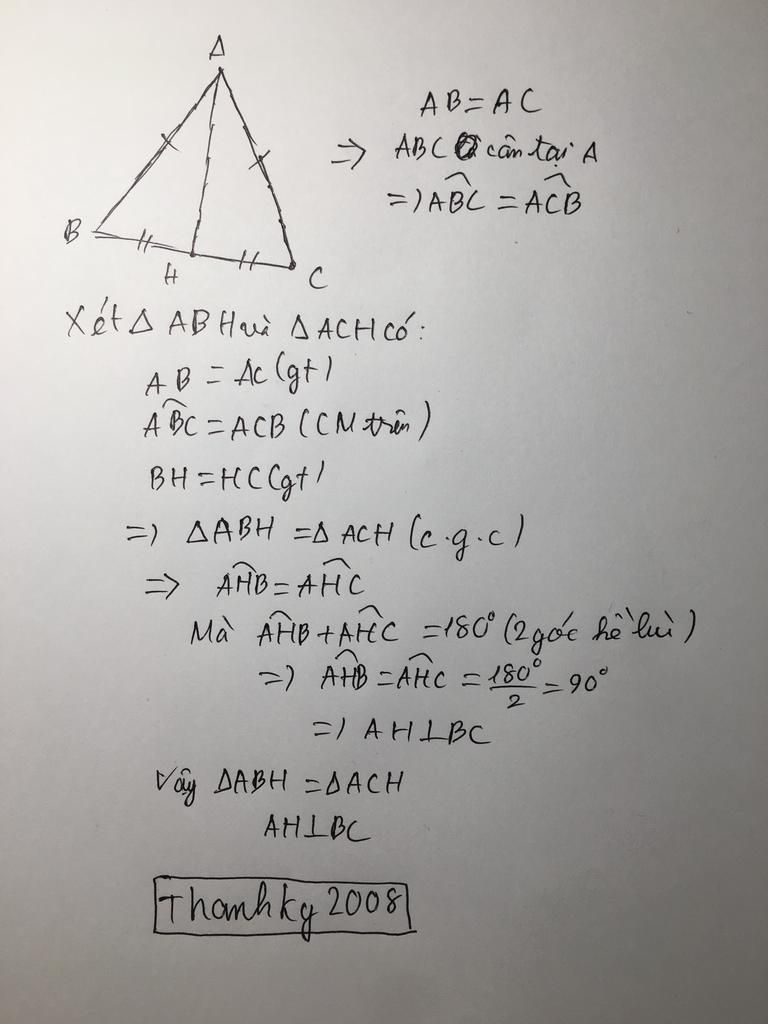 A
B
H
C
AB = AC
=> ABC cân tại A
=> ABC = ACB
Xét Δ ABH và Δ ACH có:
AB = AC (gt)
ABC = ACB (CM trên)
BH = HC (gt)
=> ΔABH = Δ ACH (c.g.c)
=> AHB = AHC
Mà AHB + AHC = 180° (2 góc kề bù)
=> AHB = AHC = 180°/2 = 90°
=> AH⊥BC
Vậy ΔABH = ΔACH
AH⊥BC
Thanhky 2008